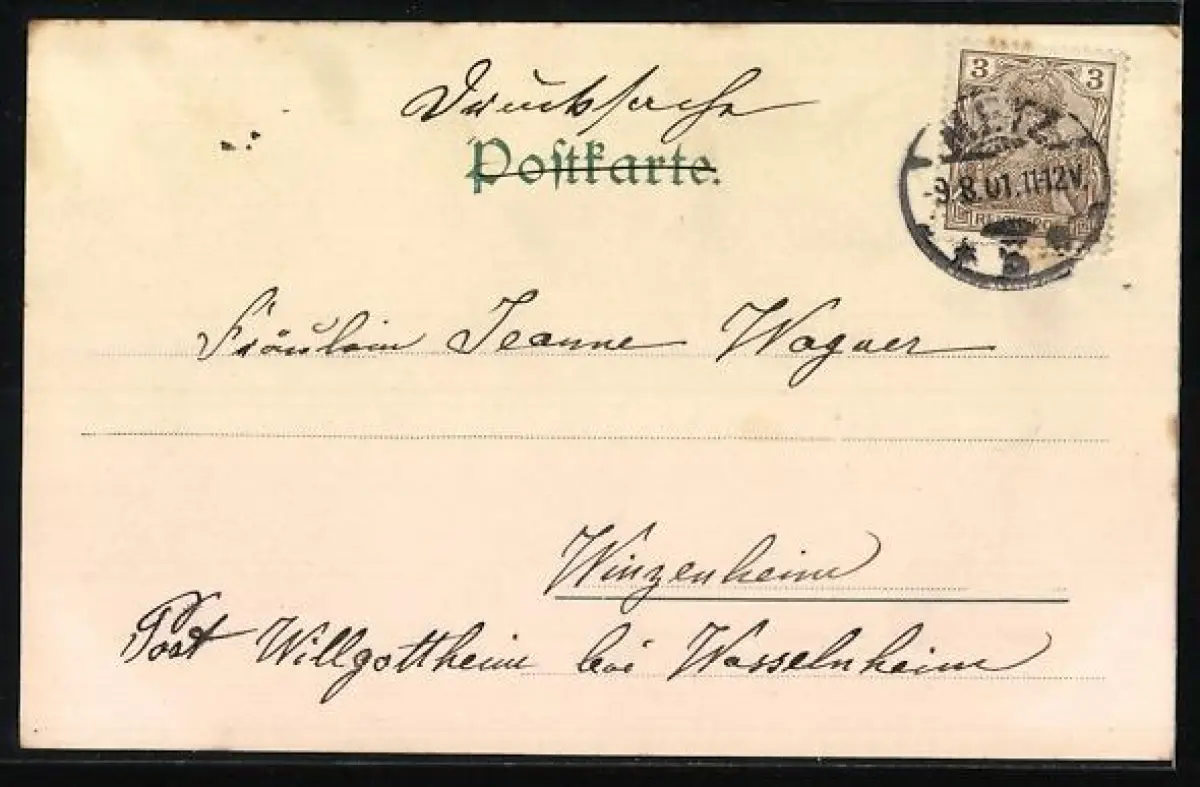 Drucksache
Postkarte.
3 3
METZ
9.8.01.11-12V.
REICHSPOST
Fräulein Jeanne Wagner
Winzenheim
Post Willgottheim bei Wasselnheim